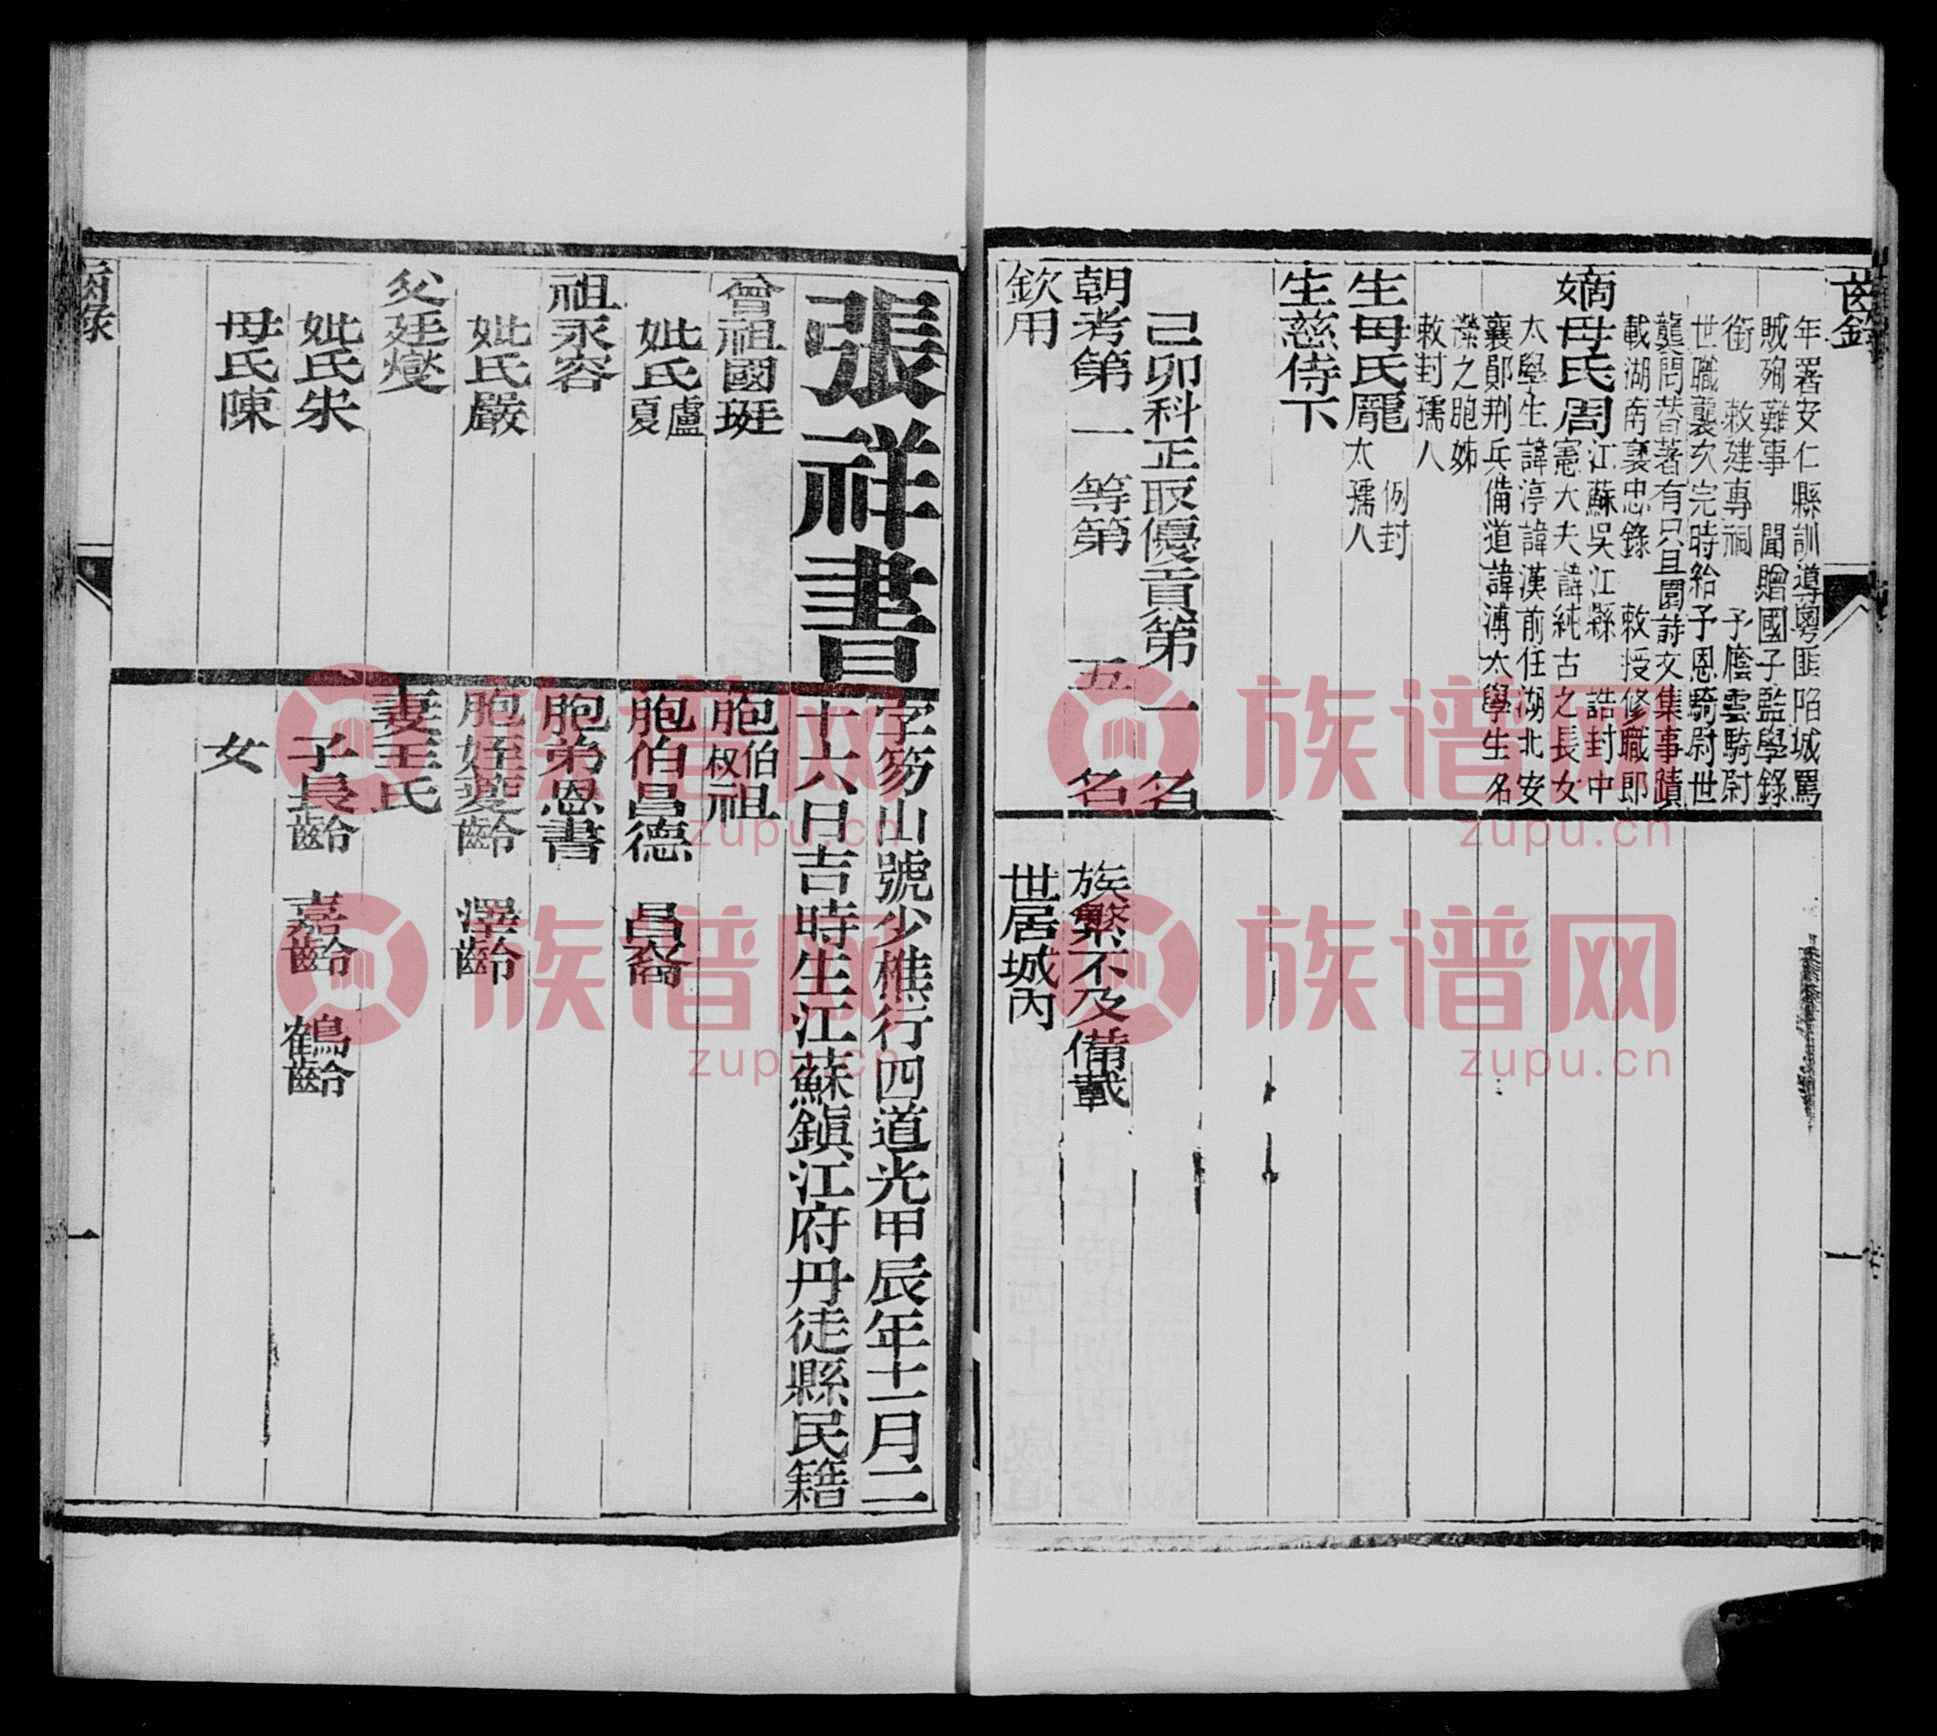 齒錄
年署安仁縣訓導粵匪陷城罵
賊殉難事　聞贈國子監學錄
銜　敕建專祠　予廕雲騎尉
世職襲次完時給予恩騎尉世
龔問昔著有只且園詩文集事蹟
載湖南襄忠錄　敕授修職郎
嫡母氏周江蘇吳江縣　誥封中
憲大夫諱純古之長女
太學生諱渟諱漢前任湖北安
襄鄖荊兵備道諱溥太學生名
濚之胞姊
敕封孺人
生母氏龎例封
太孺人
生慈侍下
己卯科正取優貢第一名
朝考第一等第五名
欽用
族繁不及備載
世居城內
一
張祥書
字笏山號少樵行四道光甲辰年十一月二
十六日吉時生江蘇鎭江府丹徒縣民籍
曾祖國珽
妣氏盧
夏
祖永容
妣氏嚴
父廷燮
妣氏朱
母氏陳
胞伯叔祖
胞伯昌德　昌裔
胞弟恩書
胞姪夔齡　澤齡
妻王氏
子長齡　嘉齡　鶴齡
女
齒錄
一
族谱网
zupu.cn
族谱网
zupu.cn
族谱网
zupu.cn
族谱网
zupu.cn